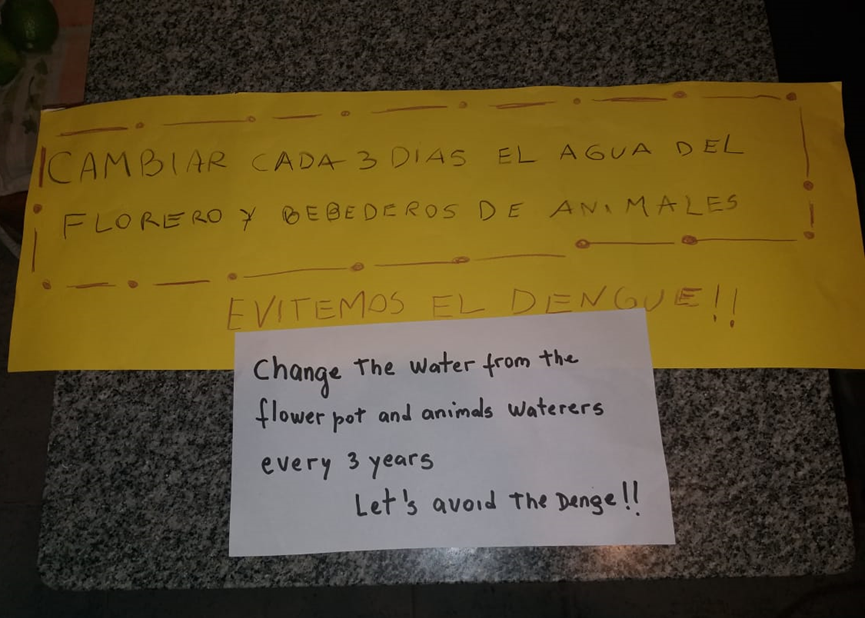 CAMBIAR CADA 3 DIAS EL AGUA DEL
FLORERO Y BEBEDEROS DE ANIMALES
EVITEMOS EL DENGUE!!
Change The water from the
flower pot and animals waterers
every 3 years
Let's avoid The Denge!!